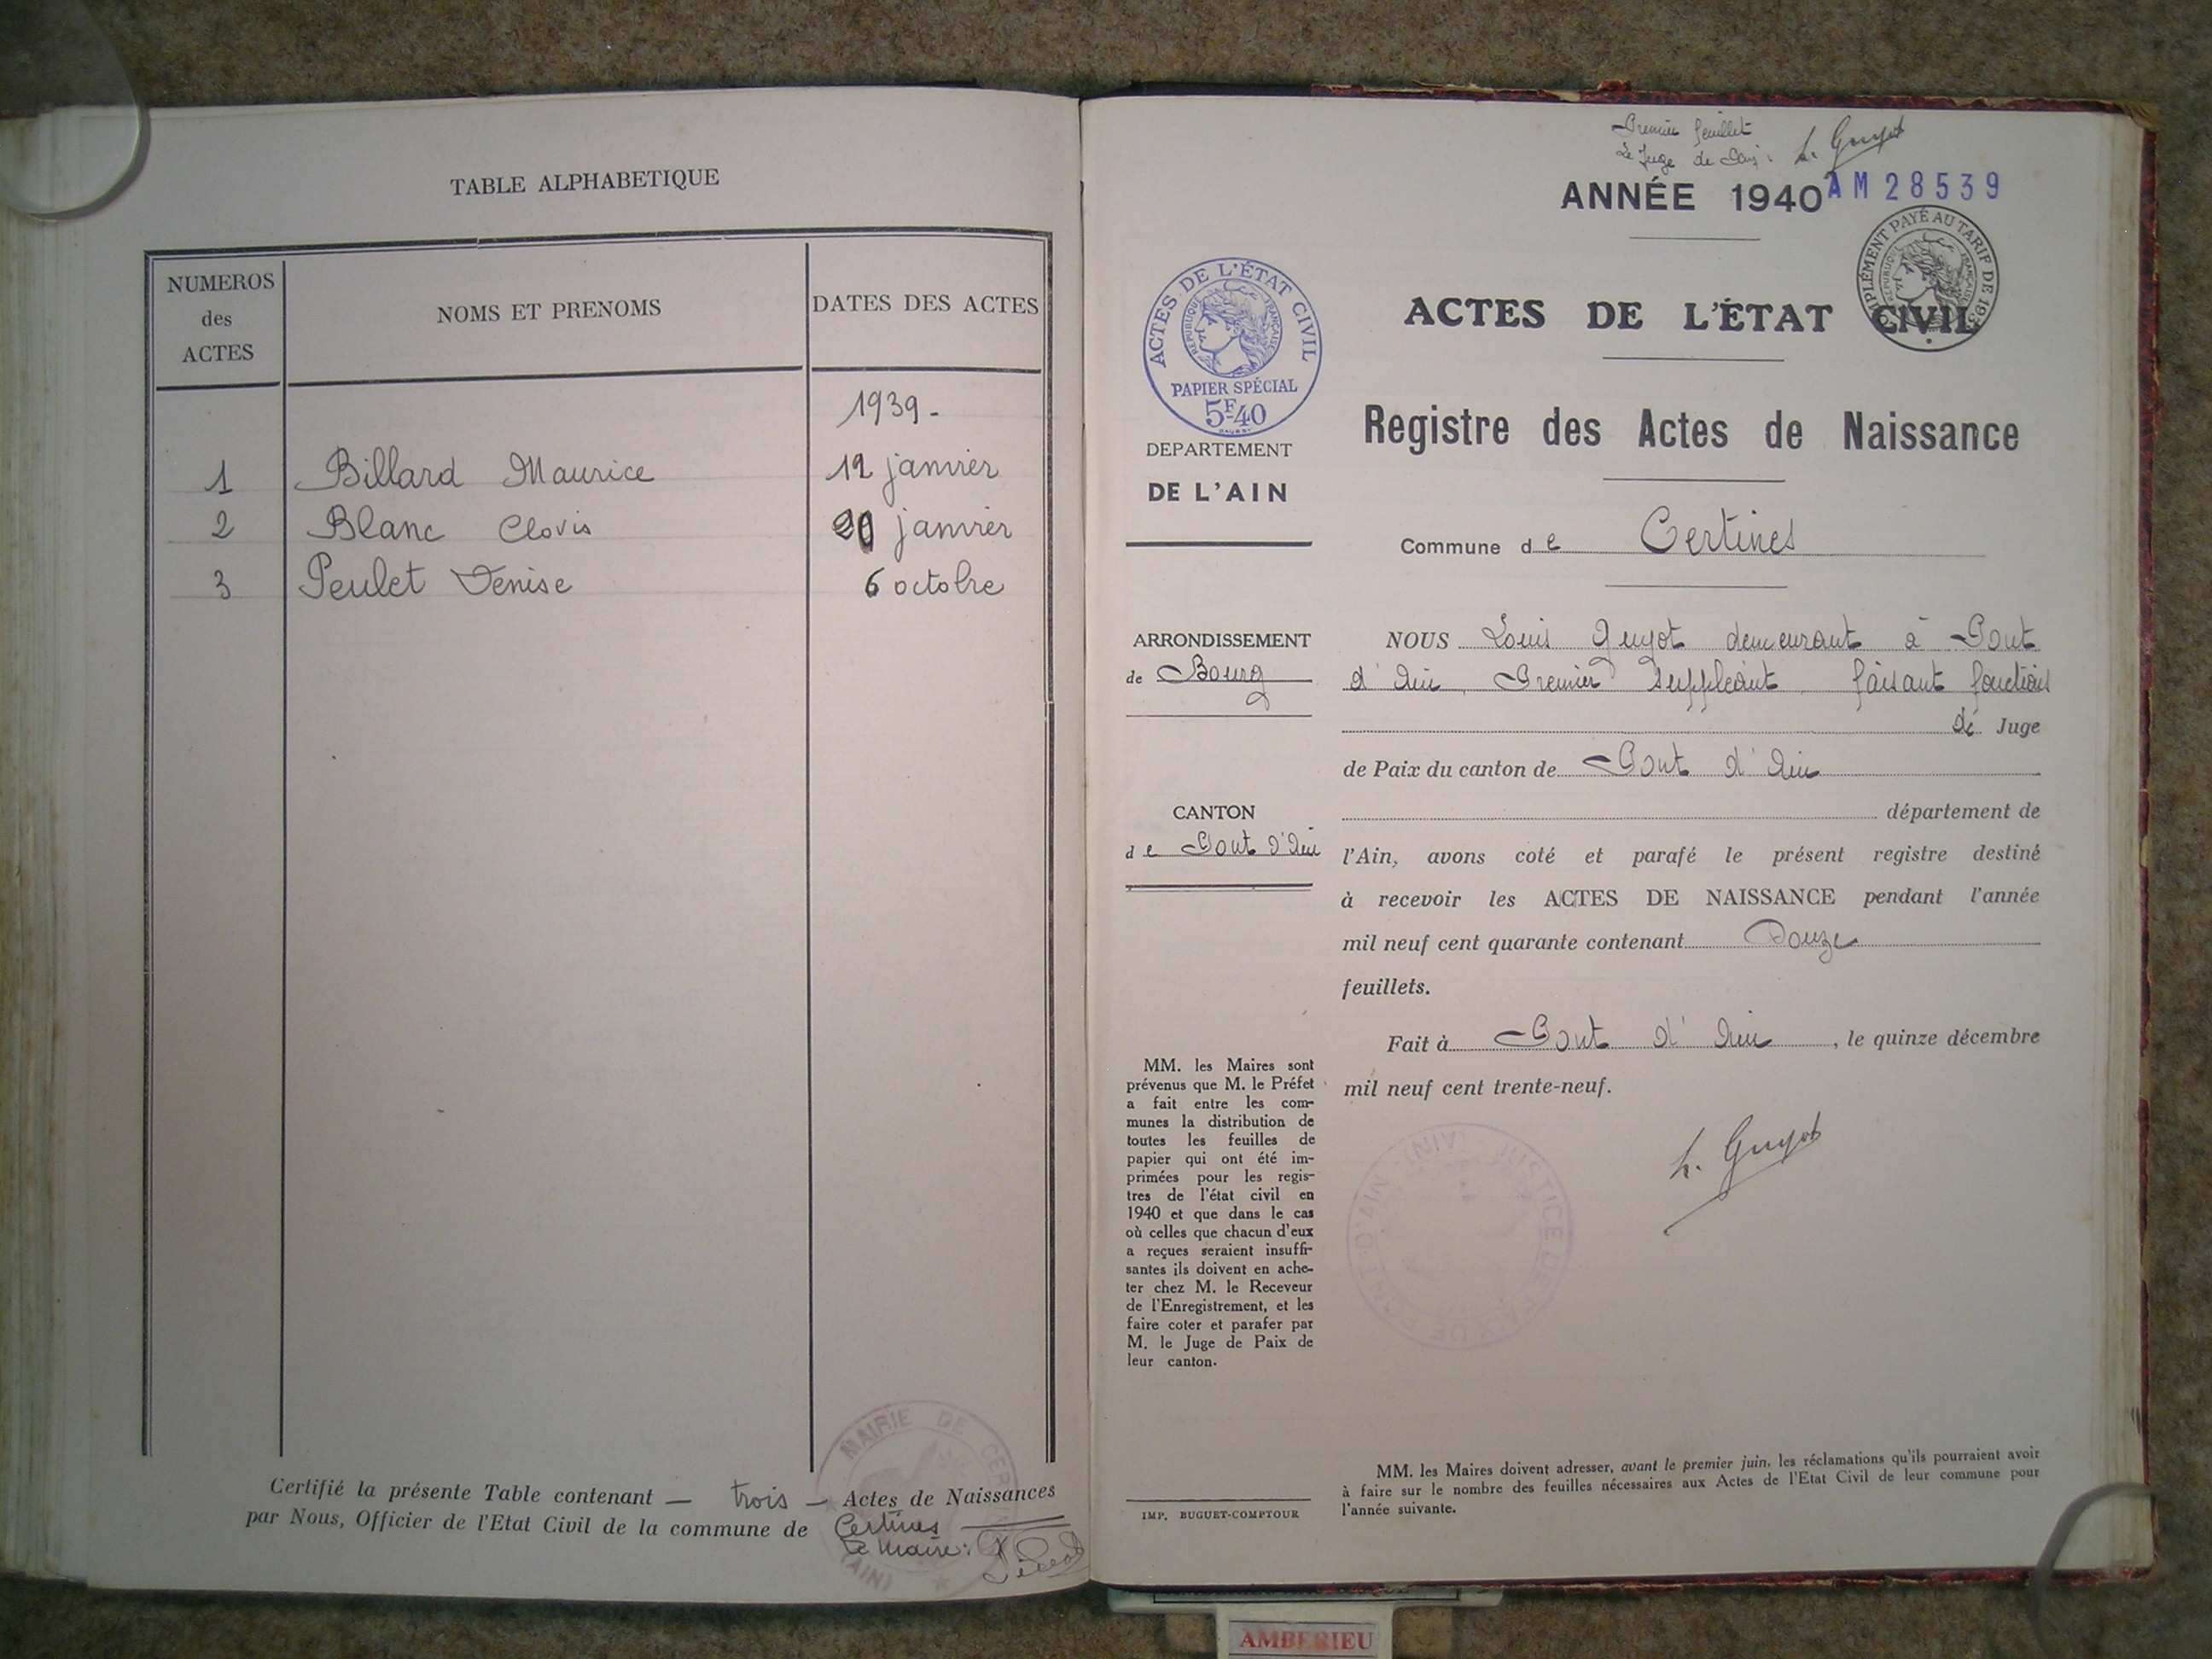 TABLE ALPHABETIQUE
NUMEROS
des
ACTES
NOMS ET PRENOMS
DATES DES ACTES
1939.
1 Billard Maurice 12 janvier
2 Blanc Clovis 20 janvier
3 Peulet Denise 6 octobre
Certifié la présente Table contenant — trois — Actes de Naissances
par Nous, Officier de l'Etat Civil de la commune de Certines
Le Maire:
MAIRIE DE CER
(AIN)
Premier feuillet
Le Juge de Paix: L. Guyot
ANNÉE 1940
AM 28539
COMPLÉMENT PAYÉ AU TARIF DE 193
RÉPUBLIQUE FRANÇAISE
ACTES DE L'ÉTAT CIVIL
RÉPUBLIQUE FRANÇAISE
PAPIER SPÉCIAL
5F40
ACTES DE L'ÉTAT CIVIL
Registre des Actes de Naissance
DEPARTEMENT
DE L'AIN
Commune de Certines
ARRONDISSEMENT
de Bourg
CANTON
de Pont d'Ain
NOUS Louis Guyot demeurant à Pont
d'Ain, Premier Suppléant faisant fonctions
de Juge
de Paix du canton de Pont d'Ain
département de
l'Ain, avons coté et parafé le présent registre destiné
à recevoir les ACTES DE NAISSANCE pendant l'année
mil neuf cent quarante contenant Douze
feuillets.
Fait à Pont d'Ain, le quinze décembre
mil neuf cent trente-neuf.
L. Guyot
JUSTICE DE PAIX DE PONT D'AIN (AIN)
MM. les Maires sont
prévenus que M. le Préfet
a fait entre les com-
munes la distribution de
toutes les feuilles de
papier qui ont été im-
primées pour les regis-
tres de l'état civil en
1940 et que dans le cas
où celles que chacun d'eux
a reçues seraient insuffi-
santes ils doivent en ache-
ter chez M. le Receveur
de l'Enregistrement, et les
faire coter et parafer par
M. le Juge de Paix de
leur canton.
IMP. BUGUET-COMPTOUR
MM. les Maires doivent adresser, avant le premier juin, les réclamations qu'ils pourraient avoir
à faire sur le nombre des feuilles nécessaires aux Actes de l'Etat Civil de leur commune pour
l'année suivante.
AMBERIEU